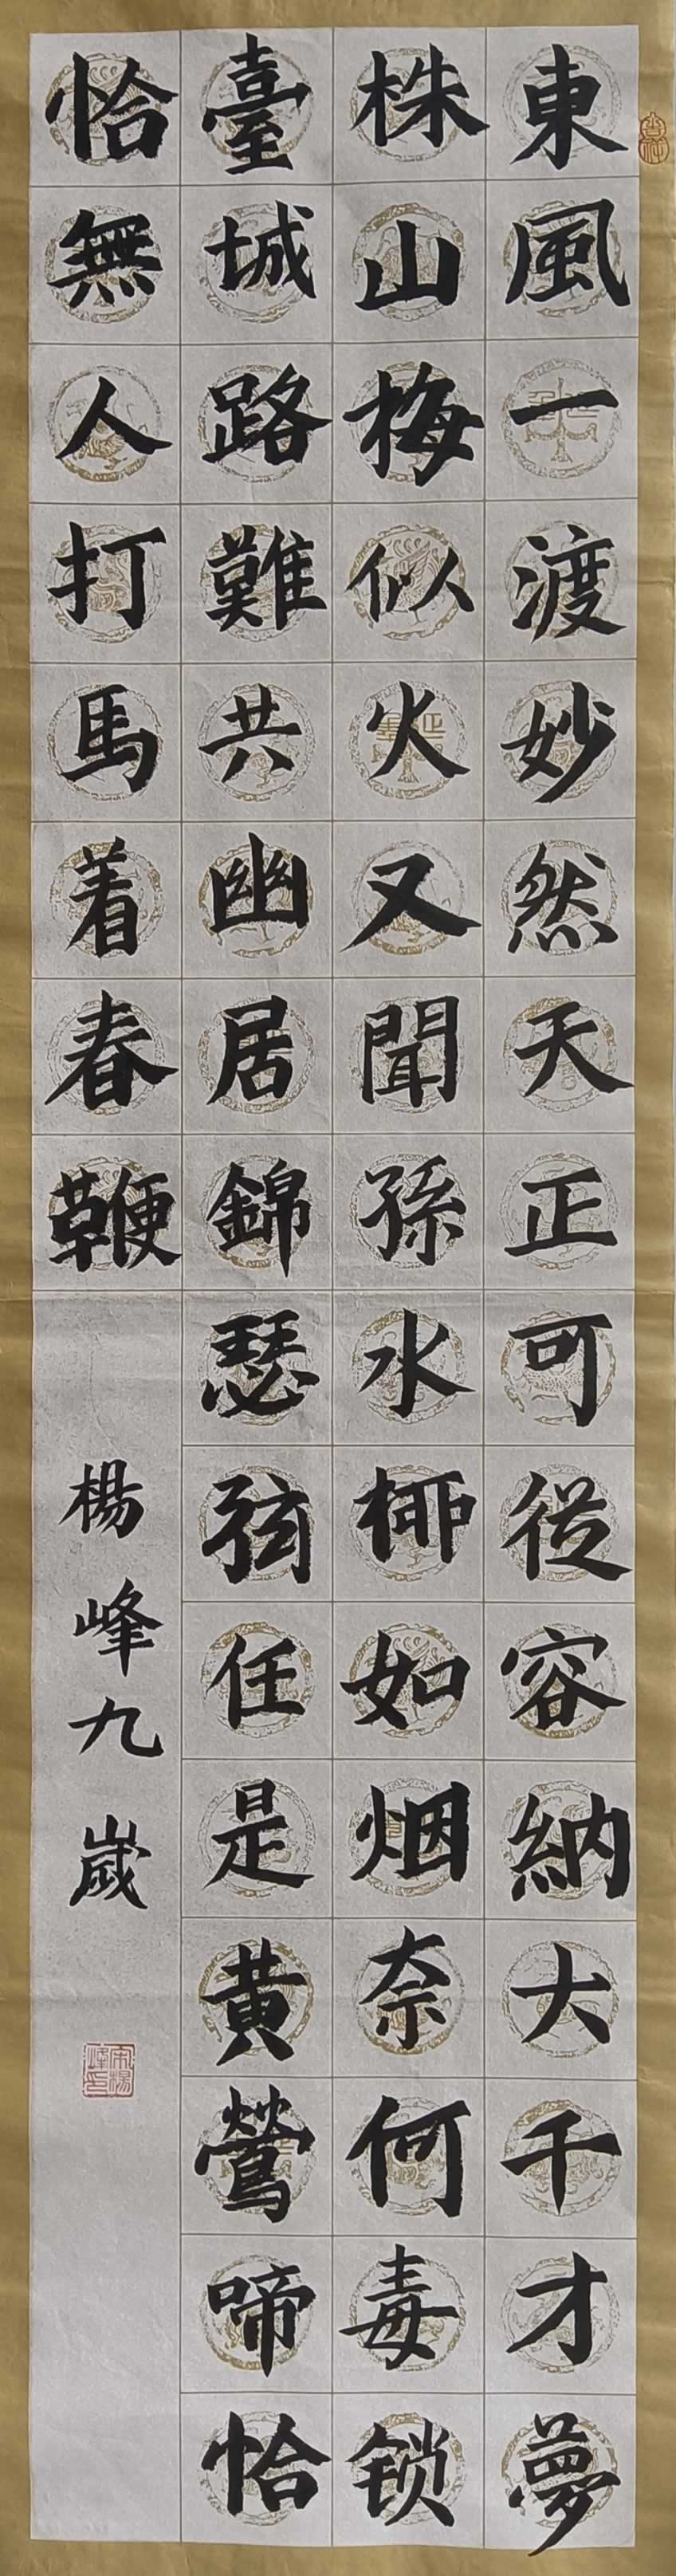 東風一渡妙然天正可從容納大千才夢
株山梅似火又聞孫水柳如烟奈何毒锁
臺城路難共幽居錦瑟弦任是黄鶯啼恰
恰無人打馬着春鞭
楊峰九歲